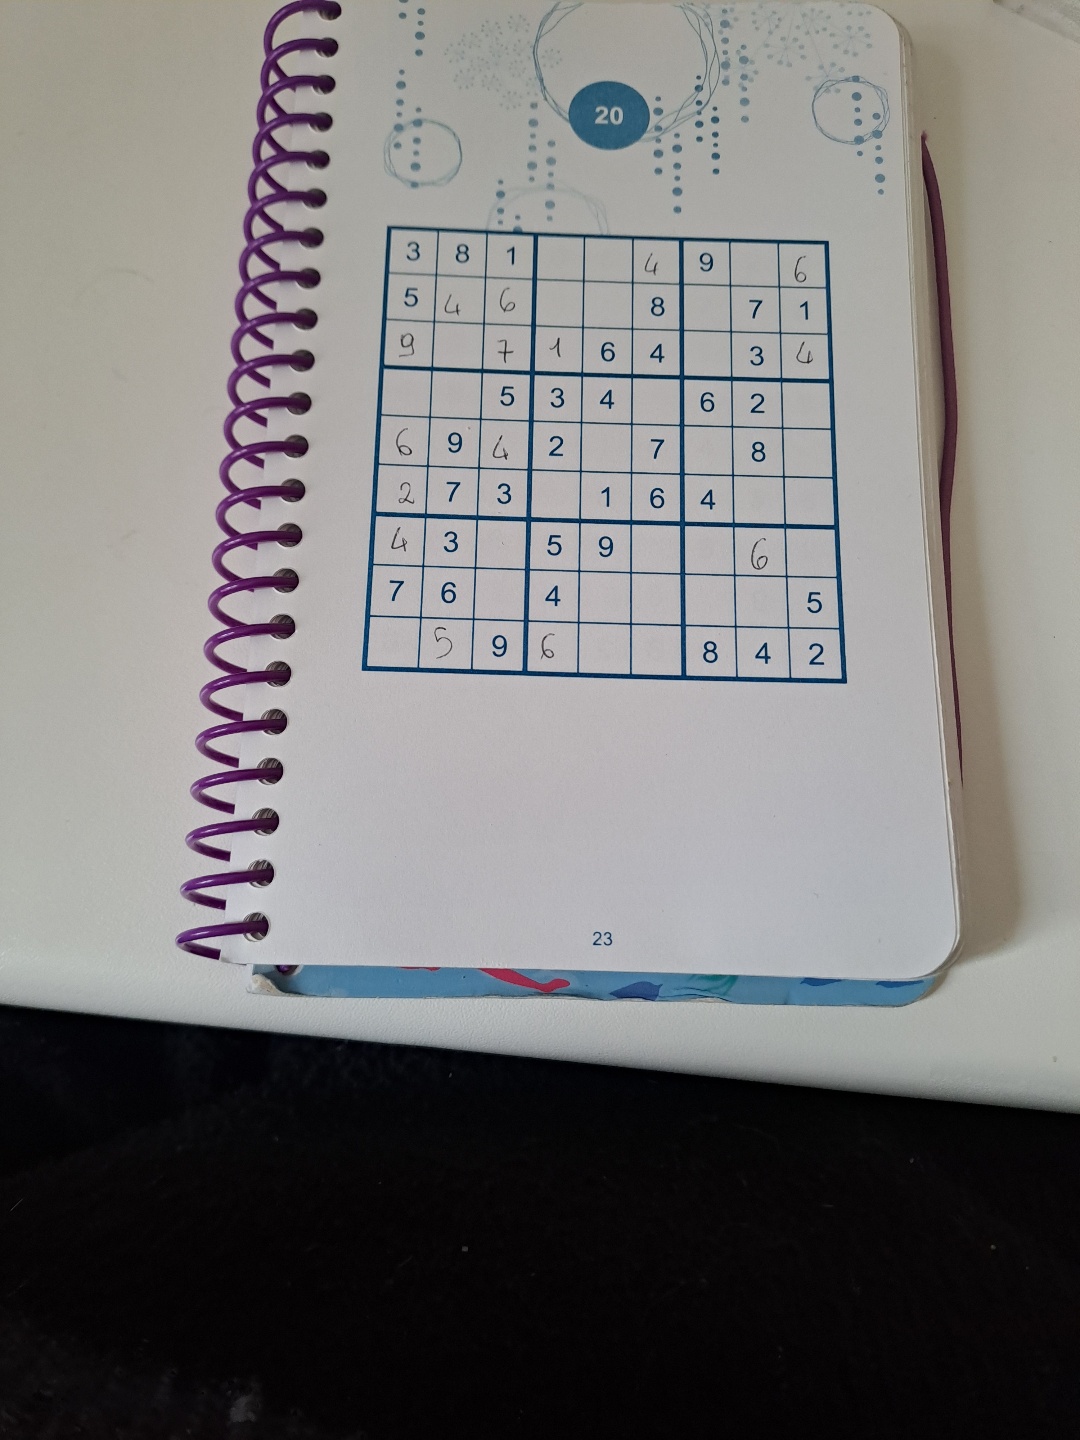 20
3 8 1 4 9 6
5 4 6 8 7 1
9 7 1 6 4 3 4
5 3 4 6 2
6 9 4 2 7 8
2 7 3 1 6 4
4 3 5 9 6
7 6 4 5
5 9 6 8 4 2
23